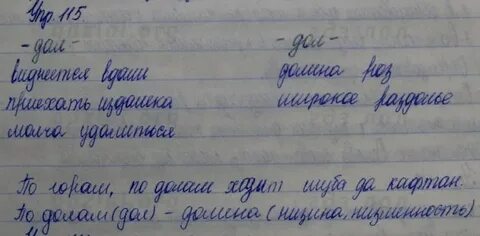 Упр. 115.
-дал- -дол-
виднеется вдали долина роз
приехать издалека широкое раздолье
молча удалиться
По горам, по долам ходит шуба да кафтан.
По долам (дол) - долина (низина, низменность)